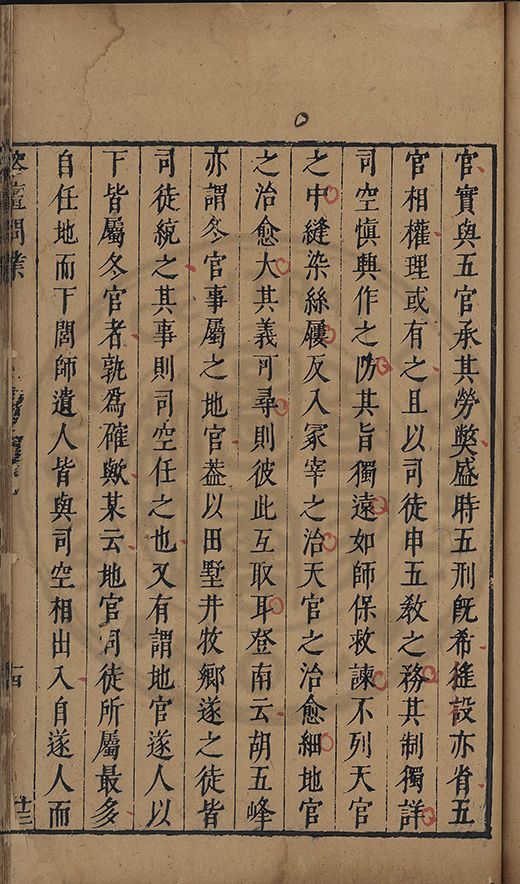 官實與五官承其勞獘盛時五刑旣希徭設亦省五
官相權理或有之且以司徒申五敎之務其制獨詳
司空愼興作之防其旨獨遠如師保救諫不列天官
之中縫染絲屨反入冢宰之治天官之治愈細地官
之治愈大其義可尋則彼此互取耳登南云胡五峰
亦謂冬官事屬之地官葢以田墅井牧鄉遂之徒皆
司徒統之其事則司空任之也又有謂地官遂人以
下皆屬冬官者孰爲確歟某云地官司徒所屬最多
自任地而下閭師遺人皆與司空相出入自遂人而
問業
十三